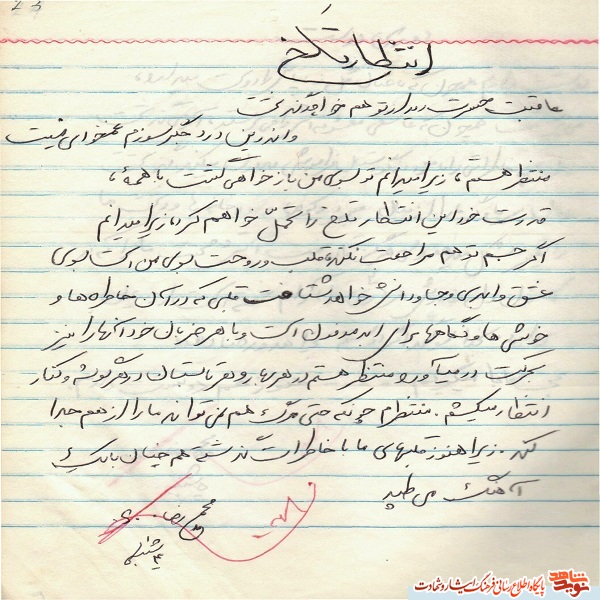 انتظار تلخ
عاقبت حسرت دیدار تو هم خواهد کشت
واندرین درد جگر سوزم غمخواری نیست
منتظر هستم، زیرا میدانم تو بسوی من باز خواهی گشت با همهٔ،
قدرت خود این انتظار تلخ را تحمل خواهم کرد، زیرا میدانم
اگر جسم تو هم مراجعت نکند، قلب و روحت بسوی من است بسوی
عشق و ابدی و جاودانش خواهد شتافت قلبی که در آن خاطره‌ها و
خوشی ها و نگاهها برای ابد مدفون است و با هر ضربان خود آنها را نیز
بحرکت در میآورد منتظر هستم در هر بهار و هر تابستان در هر گوشه و کنار
انتظار میکشم. منتظرم چونکه حتی مرگ هم نمی تواند ما را از هم جدا
کند. زیرا هنوز قلبهای ما با خاطرات گذشته هم چنان با یک
آهنگ می طپد
محمد رضا
۴ شنبه
نوید شاهد
پایگاه اطلاع رسانی فرهنگ ایثار و شهادت